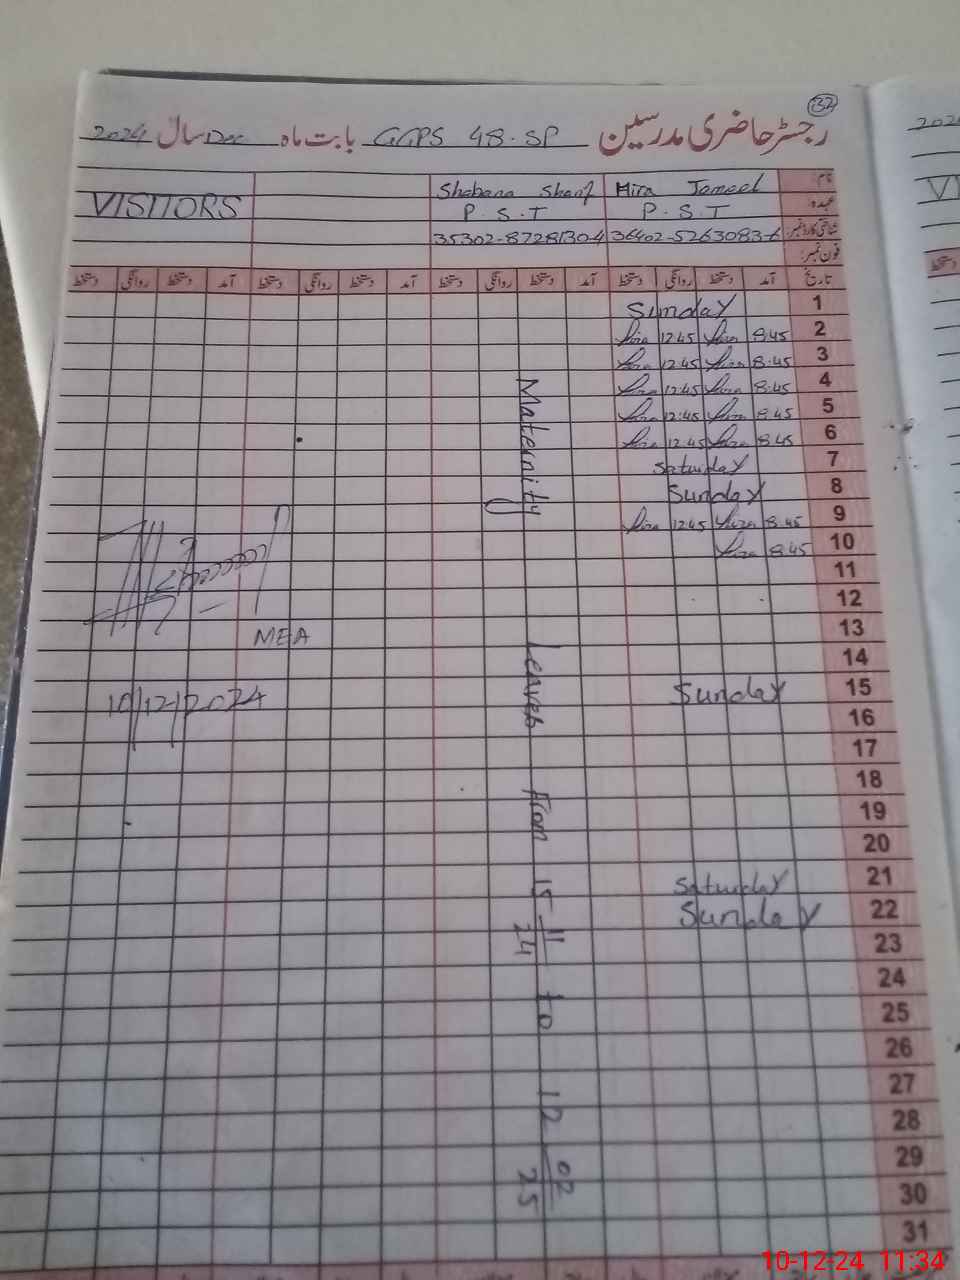 132
رجسٹر حاضری مدرسین GGPS 48.SP بابت ماہ Dec سال 2024
نام: Hira Jameel Shabana Sharif VISITORS
عہدہ: P.S.T P.S.T
شناختی کارڈ نمبر: 36402-5263083-6 35302-8728130-4
فون نمبر:
تاریخ آمد دستخط روانگی دستخط آمد دستخط روانگی دستخط آمد دستخط روانگی دستخط آمد دستخط روانگی دستخط
1 Sunday
2 8:45 Hira 12:45 Hira
3 8:45 Hira 12:45 Hira
4 8:45 Hira 12:45 Hira
5 8:45 Hira 12:45 Hira
6 8:45 Hira 12:45 Hira
7 Saturday
8 Sunday
9 8:45 Hira 12:45 Hira
10 8:45 Hira
11
12
13
14
15 Sunday
16
17
18
19
20
21 Saturday
22 Sunday
23
24
25
26
27
28
29
30
31
Maternity Leaves From 15 11/24 to 12 02/25
MEA
10/12/2024
202
VI
دستخط
10-12-24 11:34